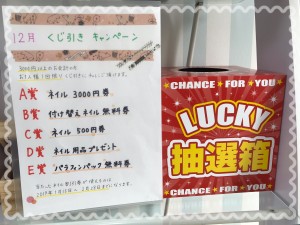 12月 くじ引き キャンペーン
A賞 ネイル 3000円券
B賞 付け替えネイル無料券
C賞 ネイル 500円券
D賞 ネイル用品プレゼント
E賞 パラフィンパック無料券
CHANCE★FOR★YOU
LUCKY
抽選箱
CHANCE★FOR★YOU